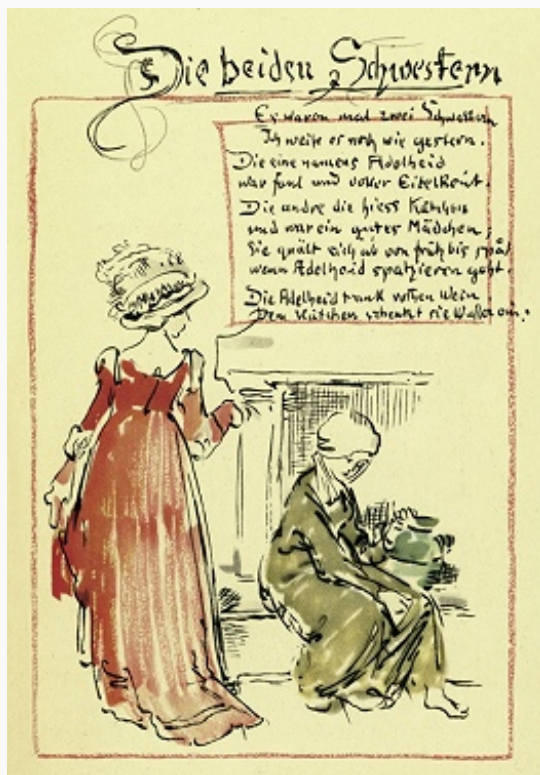 Die beiden Schwestern
Es waren mal zwei Schwestern
Ich weiß es noch wie gestern.
Die eine namens Adelheid
war faul und voller Eitelkeit.
Die andre die hiess Käthchen
und war ein gutes Mädchen,
Sie quält sich ab von früh bis spät
wenn Adelheid spatzieren geht.
Die Adelheid trank rothen Wein
Dem Kätchen schenkt sie Wasser ein.